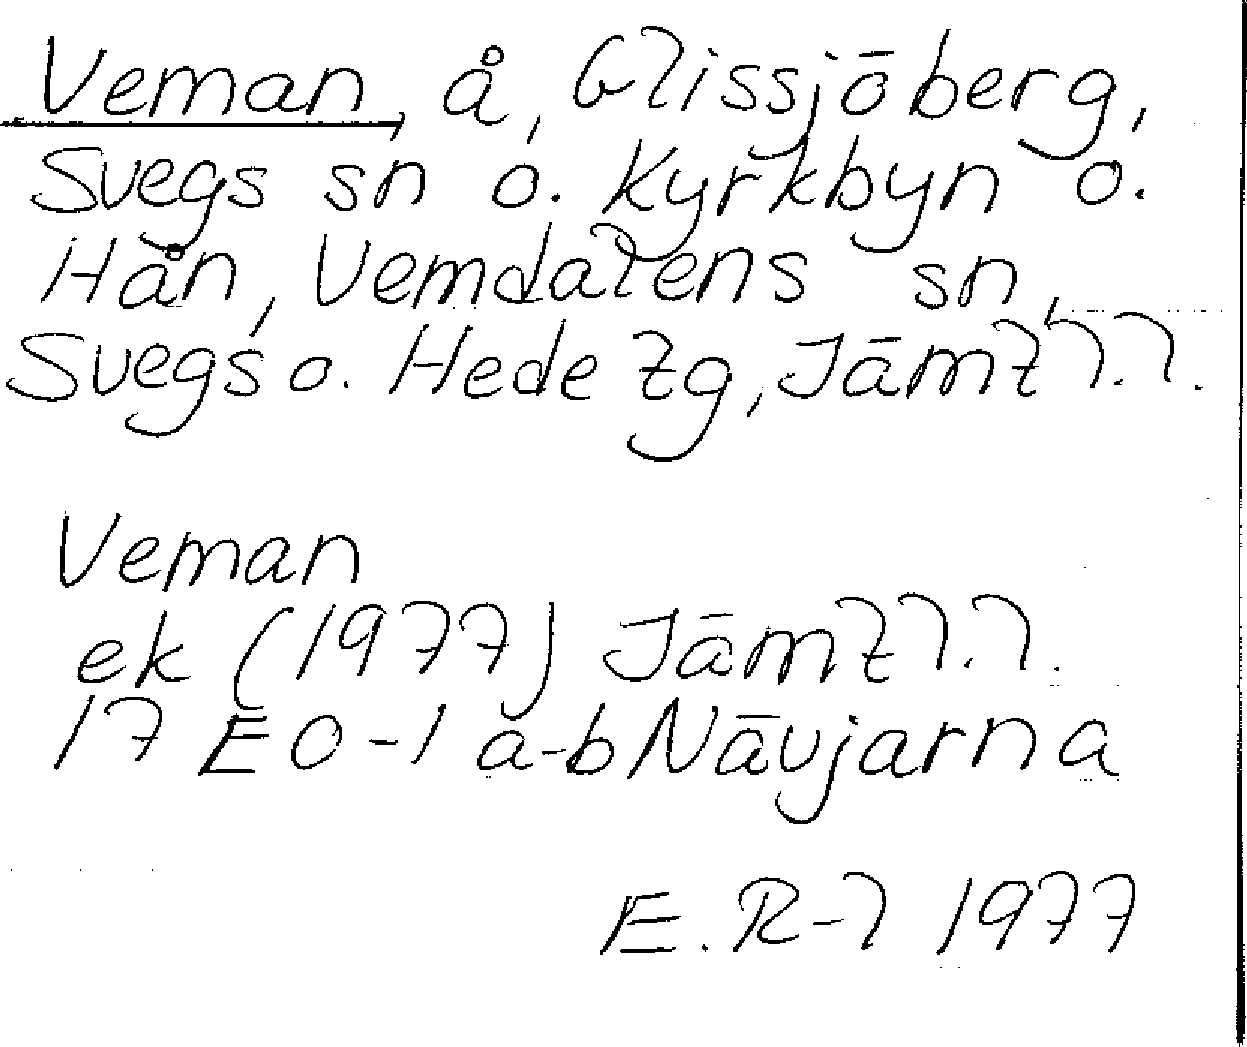 Veman, å, Glissjöberg,
Svegs sn o. Kyrkbyn o.
Hån, Vemdalens sn,
Svegs o. Hede tg, Jämtl. l.
Veman
ek (1977) Jämtl. l.
17 E 0-1 a-b Nävjarna
E. R-l 1977